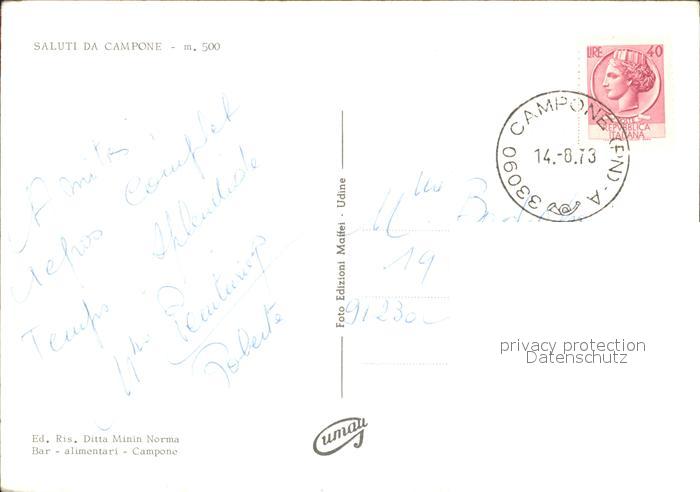 SALUTI DA CAMPONE - m. 500
LIRE 40
REPUBBLICA
ITALIANA
33090 CAMPONE (PN) - A
14.-8.73
Amitiés
repos complet
Temps splendide
Roberte
Mme
19
91230
Foto Edizioni Maffei - Udine
privacy protection
Datenschutz
Ed. Ris. Ditta Minin Norma
Bar - alimentari - Campone